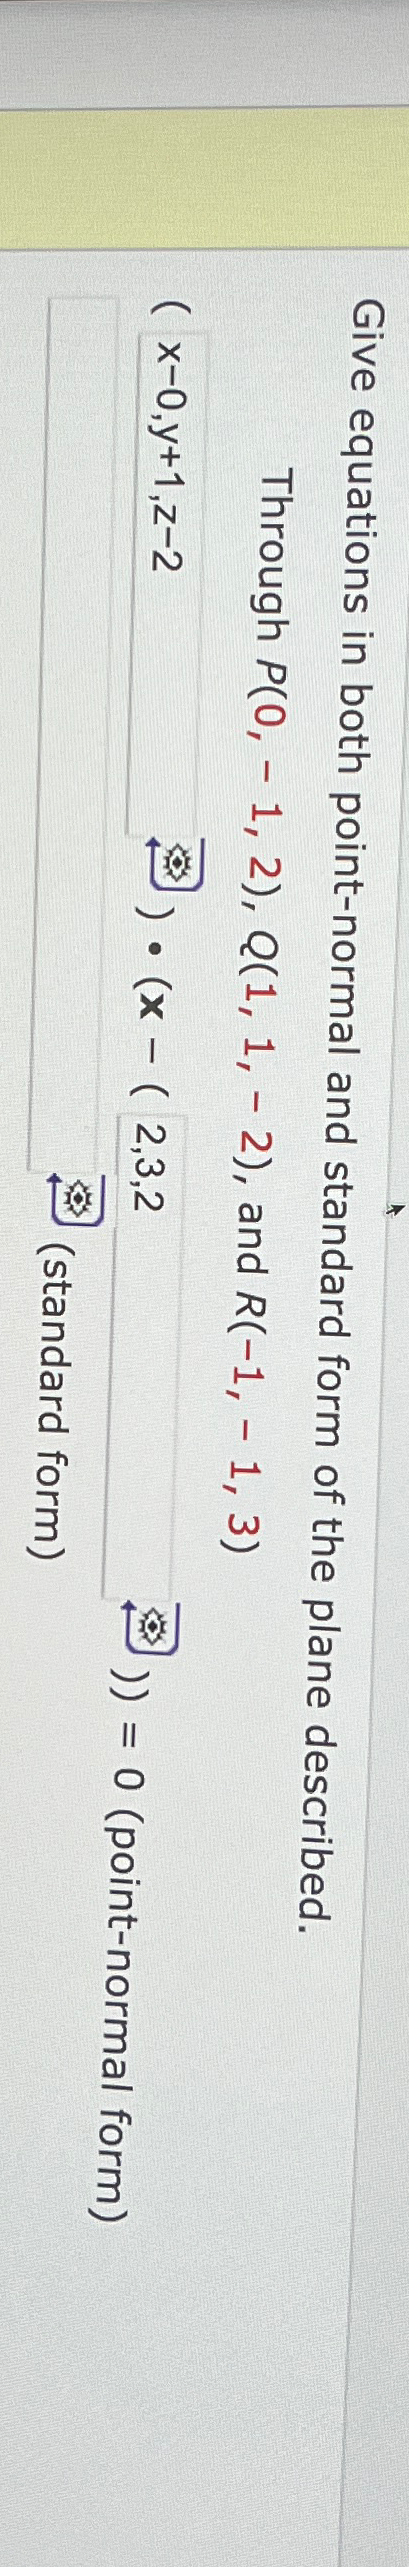 Give equations in both point-normal and standard form of the plane described.
Through P(0, −1, 2), Q(1, 1, −2), and R(−1, −1, 3)
( x−0,y+1,z−2 ) • (x − ( 2,3,2 )) = 0 (point-normal form)
(standard form)